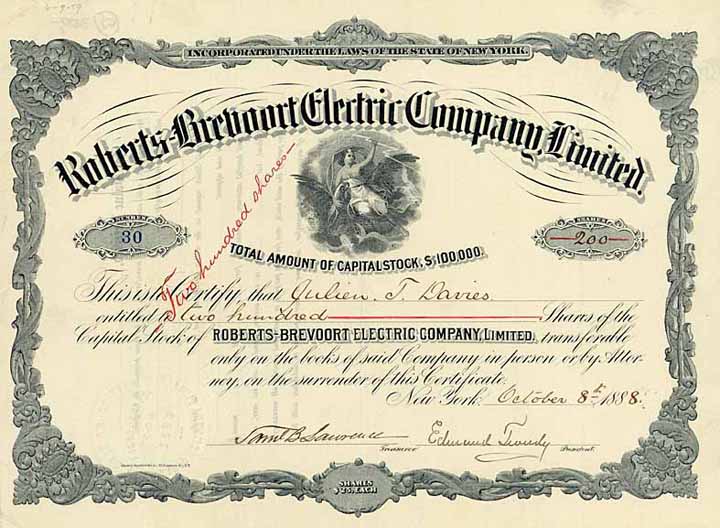 INCORPORATED UNDER THE LAWS OF THE STATE OF NEW YORK.
Roberts-Brevoort Electric Company, Limited.
NUMBER
30
SHARES
200
Two hundred shares
TOTAL AMOUNT OF CAPITAL STOCK, $100,000.
This is to Certify, that Julien. T. Davies.
entitled to two hundred Shares of the
Capital Stock of ROBERTS-BREVOORT ELECTRIC COMPANY, LIMITED, transferable
only on the books of said Company in person or by Attor-
ney, on the surrender of this Certificate.
New York October 8th 1888.
Saml B Lawrence Edmund Tweedy
Treasurer President.
SHARES
$25, EACH